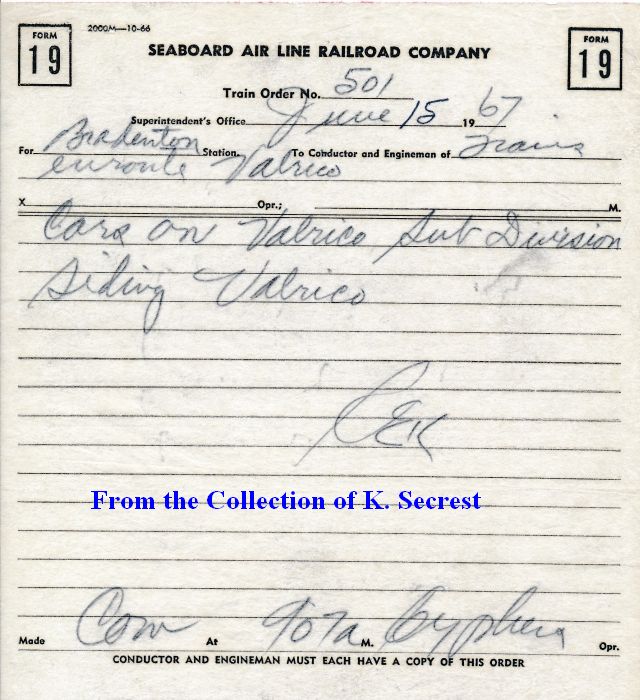 FORM 19
2000M—10-66
FORM 19
SEABOARD AIR LINE RAILROAD COMPANY
Train Order No. 501
Superintendent's Office June 15 1967
For Bradenton Station. To Conductor and Engineman of Trains
enroute Valrico
X Opr.; M.
Cars on Valrico Sub Division
Siding Valrico
CEK
From the Collection of K. Secrest
Made Com At 907a M. Cyphers Opr.
CONDUCTOR AND ENGINEMAN MUST EACH HAVE A COPY OF THIS ORDER